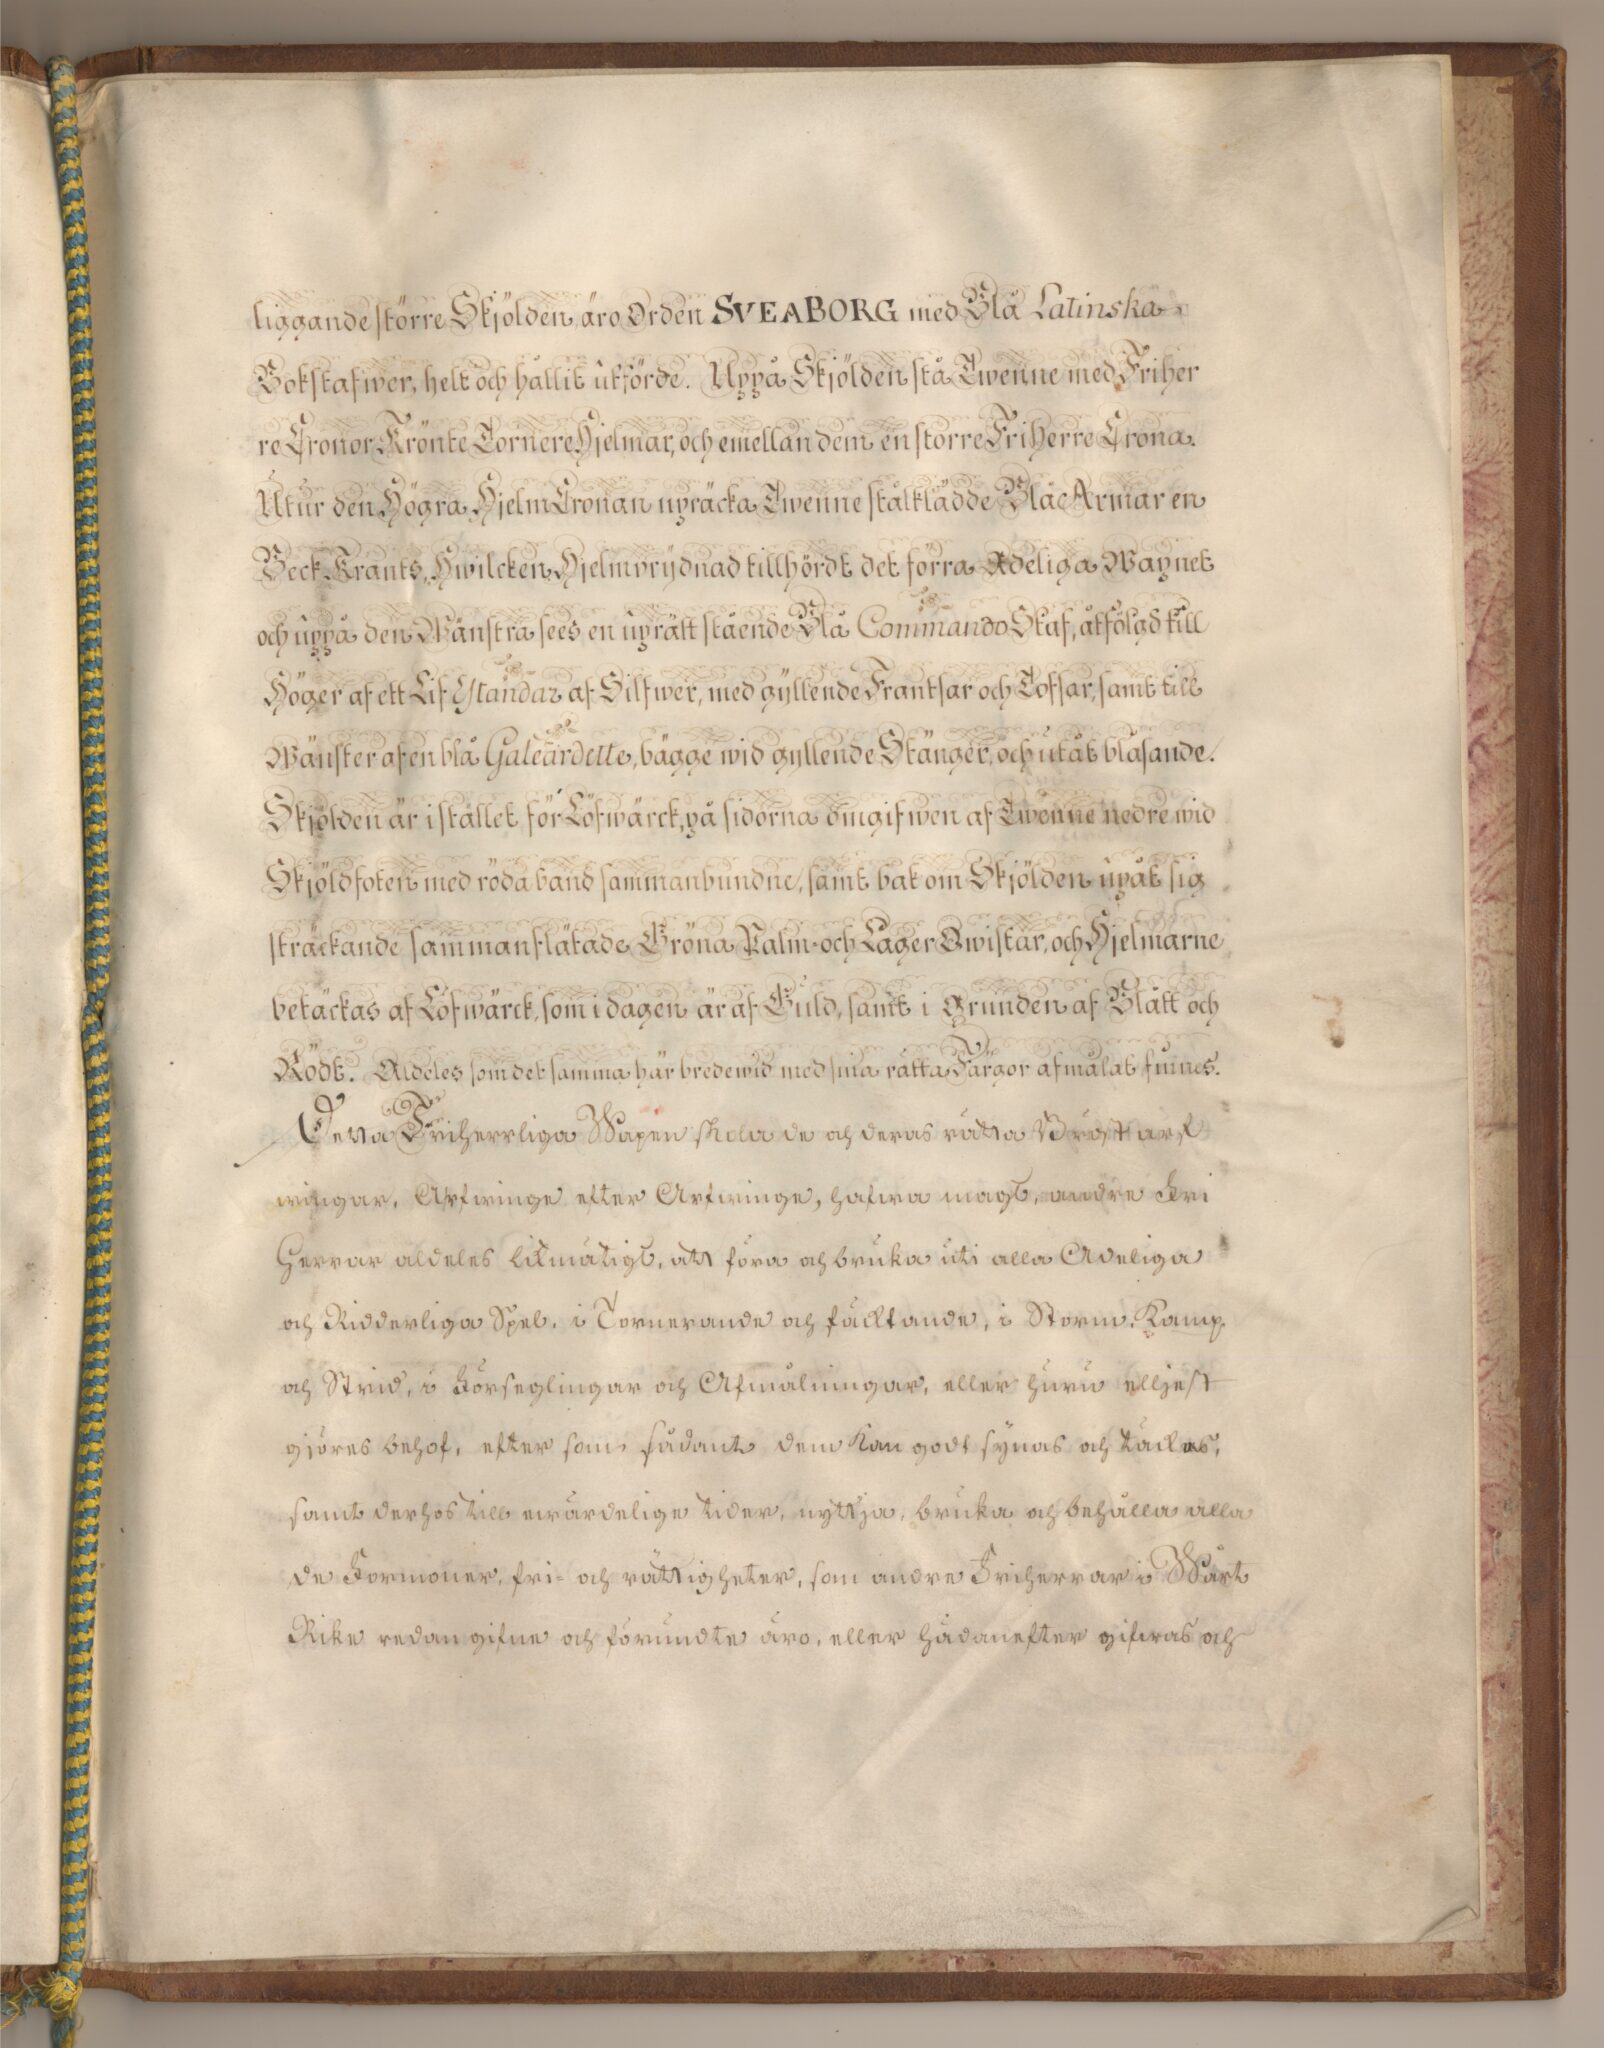 liggande större Skjölden, äro Orden SVEABORG med Blå Latinska
Bokstafwer, helt och hållit utförde. Uppå Skjölden stå Twenne med Friher
re Cronor Krönte Tornere Hjelmar, och emellan dem en större Friherre Crona.
Utur den Högra HjelmCronan upräcka Twenne stålklädde Blåe Armar en
Beck Krants, Hwilcken Hjelmprydnad tillhördt det förra Adeliga Wapnet
och uppå den Wänstra sees en uprätt stående Blå Commando Staf, åtfölgd till
Höger af ett Lif Standar af Silfwer, med gyllende Frantsar och Tofsar, samt till
Wänster af en blå Galeardette, bägge wid gyllende Stänger, och utåt blåsande.
Skjölden är i stället för Löfwärck, på sidorna omgifwen af Twenne nedre wid
Skjöldfoten med röda band sammanbundne, samt bak om Skjölden upåt sig
sträckande sammanflätade Gröna Palm- och Lager Qwistar, och Hjelmarne
betäckas af Löfwärck, som i dagen är af Guld, samt i Grunden af Blått och
Rödt. Aldeles som det samma här bredewid med sina rätta Färgor afmålat finnes.
Detta Friherrliga Wapen skola de och deras rätta Bröst arf
wingar, Arfwinge efter Arfwinge, hafwa magt, andre Fri
Herrar aldeles likmätigt, att föra och bruka uti alla Adeliga
och Ridderliga Spel, i Tornerande och fäcktande, i Storm, Kamp
och Strid, i Förseglingar och Afmålningar, eller huru elljest
gjöres behof, efter som sådant dem kan godt synas och täckas,
samt derhos till ewärdelige tider, nyttja, bruka och behålla alla
de Förmoner, fri- och rättigheter, som andre Friherrar i Wårt
Rike redan gifne och förundte äro, eller hädanefter gifwas och